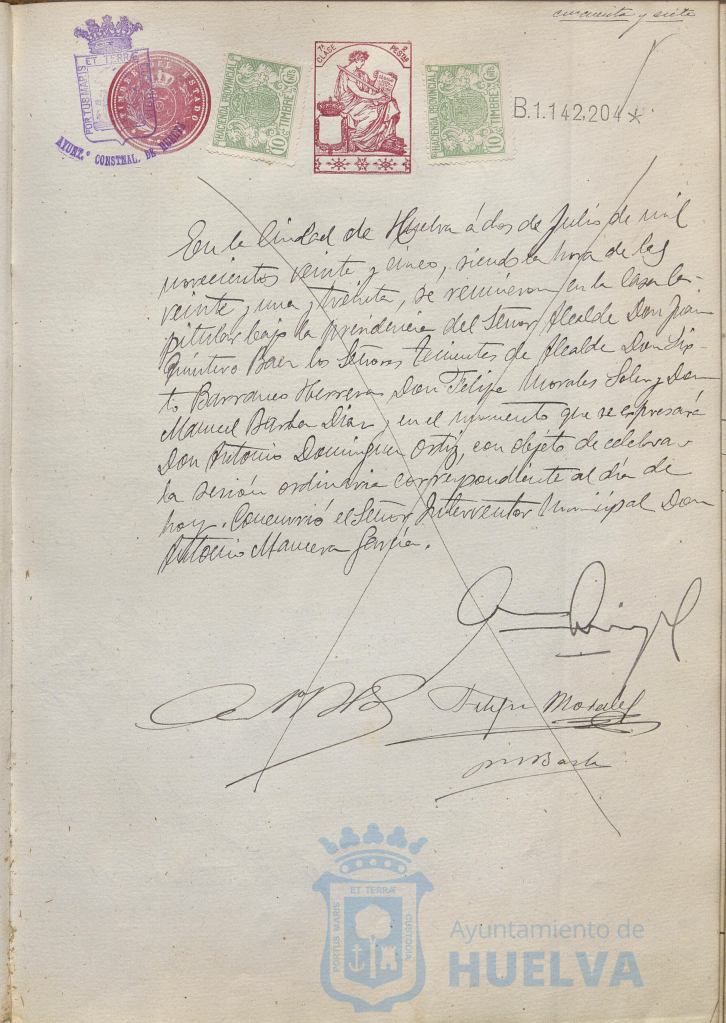 cincuenta y siete
PORTUS MARIS ET TERRÆ
AYUNT.º CONSTNAL. DE HUELVA
TIMBRE DEL ESTADO
HACIENDA PROVINCIAL
10 Cts
TIMBRE
7ª CLASE
2 PESTAS
HACIENDA PROVINCIAL
10 Cts
TIMBRE
B.1.142,204*
En la Ciudad de Huelva á dos de Julio de mil
novecientos veinte y cinco, siendo la hora de las
veinte y una y treinta, se reunieron en la Casa Ca-
pitular bajo la presidencia del Señor Alcalde Don Juan
Quintero Baez los Señores tenientes de Alcalde Don Six-
to Barranco Herrera Don Felipe Morales Soler y Don
Manuel Barba Diaz y en el momento que se expresará
Don Antonio Dominguez Ortiz, con objeto de celebrar
la sesión ordinaria correspondiente al día de
hoy. Concurrió el Señor Interventor Municipal Don
Antonio Garcia.
Felipe Morales
Barba
PORTUS MARIS ET TERRÆ CUSTODIA
Ayuntamiento de
HUELVA